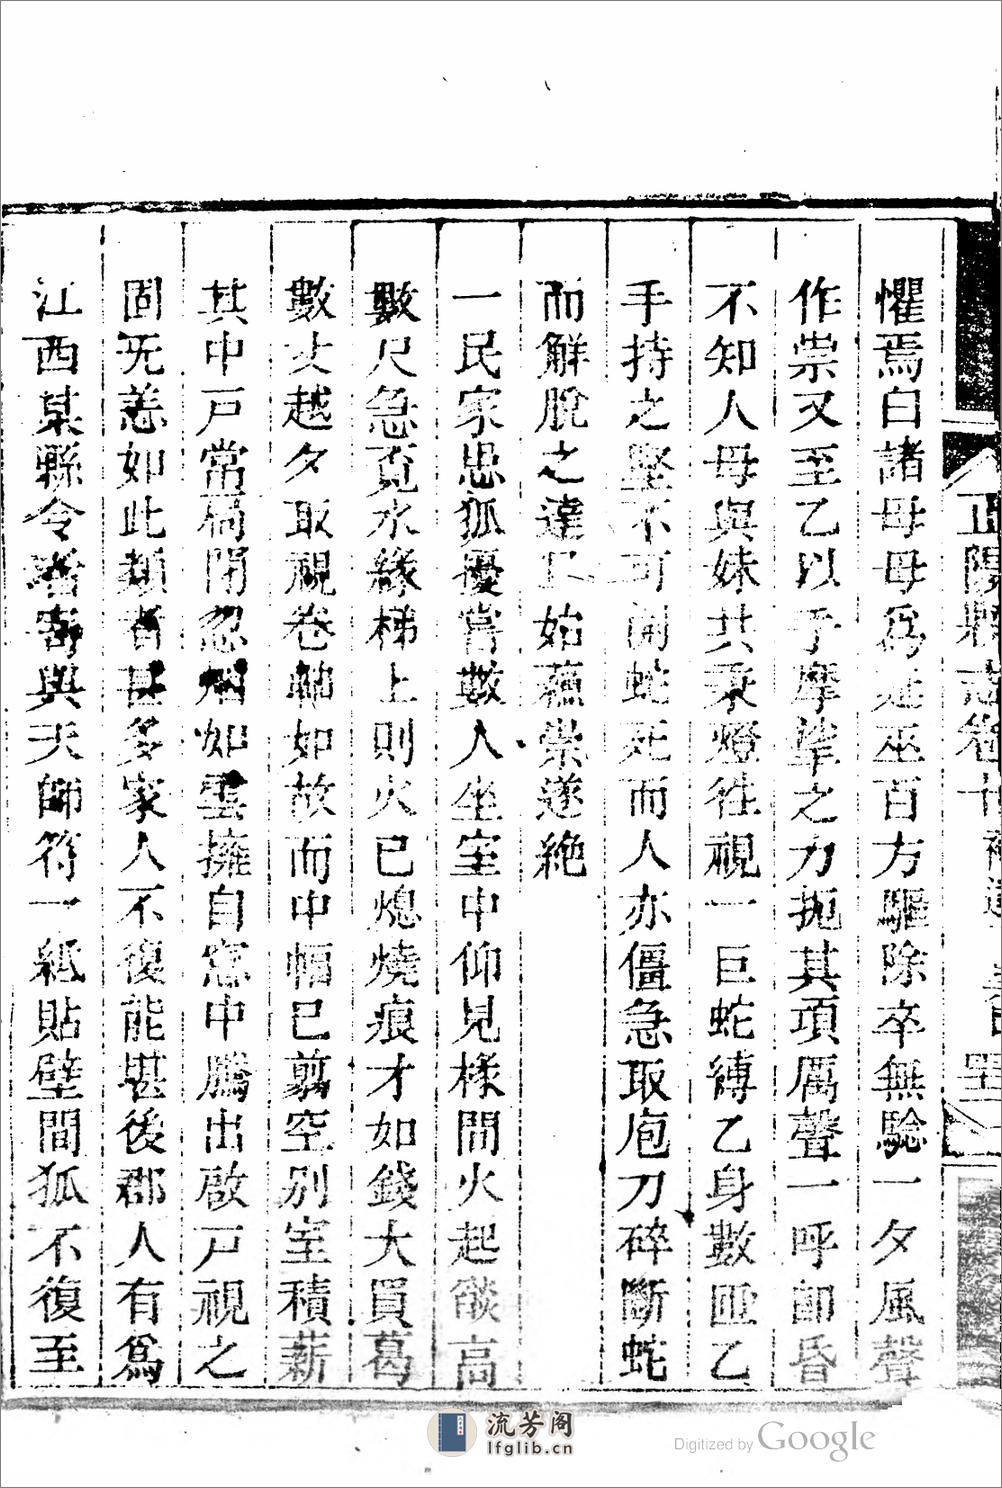 懼焉白諸母母爲延巫百方驅除卒無驗一夕風聲
作祟又至乙以手摩挲之力扼其項厲聲一呼卽昏
不知人母與妹共秉燈往視一巨蛇縛乙身數匝乙
手持之堅不可開蛇死而人亦僵急取庖刀碎斷蛇
而解脫之達旦始蘓祟遂絶
一民家患狐擾嘗數人坐室中仰見椽間火起燄高
數尺急覓水緣梯上則火已熄燒痕才如錢大買葛
數丈越夕取視卷軸如故而中幅已剪空別室積薪
其中戸常扃閉忽烟如雲擁自窓中騰出啟戸視之
固无恙如此類者甚多家人不復能堪後郡人有爲
江西某縣令者寄與天師符一紙貼壁間狐不復至
正陽縣志卷十補遺
流芳阁
lfglib.cn
Digitized by Google